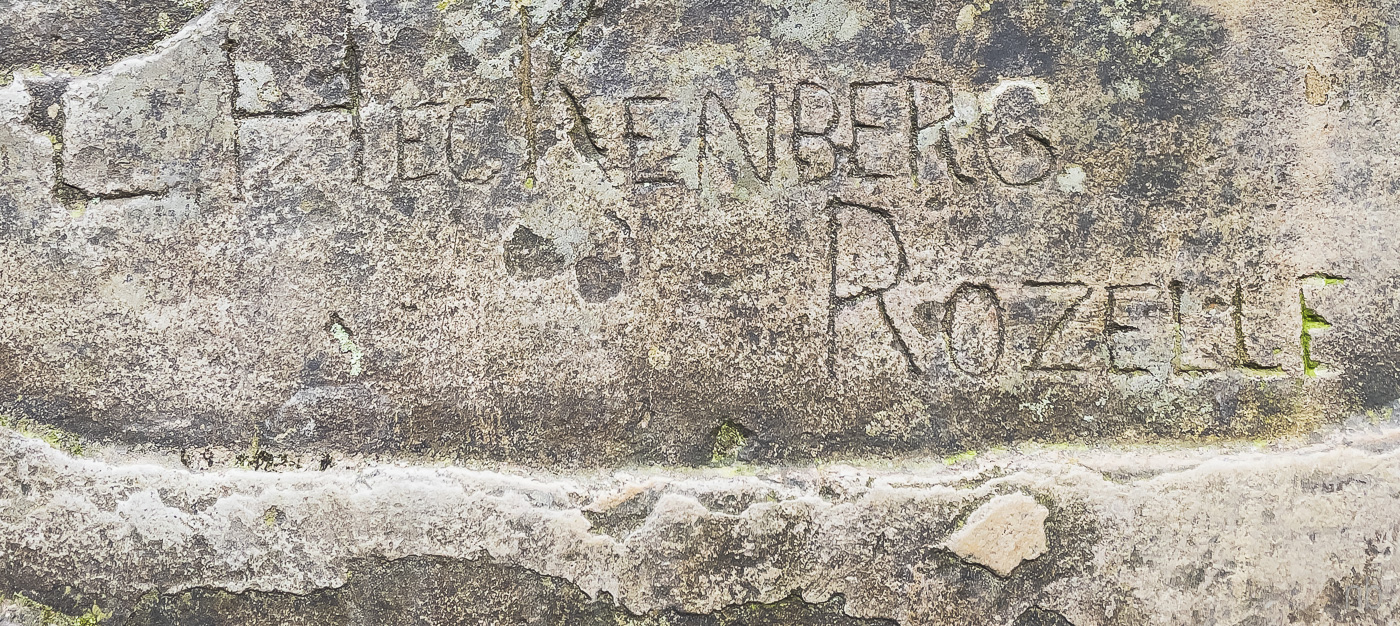 L HECKENBERG
ROZELLE